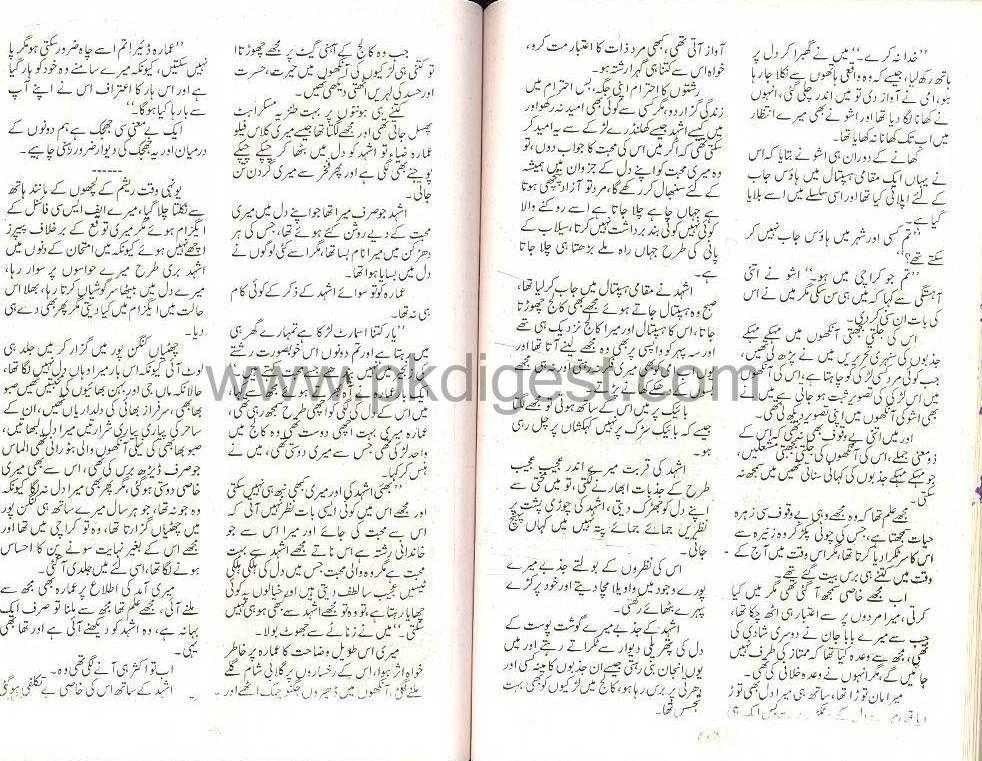 "خدا نہ کرے۔" میں نے گھبرا کر دل پر
ہاتھ رکھ لیا، جیسے کہ وہ واقعی ہاتھوں سے نکلا جا رہا
ہو، امی نے آواز دی تو میں اندر چلی گئی، انہوں
نے کھانا لگا دیا تھا اور اشو نے بھی میرے انتظار
میں اب تک کھانا نہ کھایا تھا۔
کھانے کے دوران ہی اشو نے بتایا کہ اس
نے یہاں ایک مقامی ہسپتال میں ہاؤس جاب
کے لئے اپلائی کیا تھا اور اسی سلسلے میں اسے بلایا
گیا ہے۔
"تم کسی اور شہر میں ہاؤس جاب نہیں کر
سکتے تھے؟"
"تم جو کراچی میں ہو۔" اشو نے اتنی
آہستگی سے کہا کہ میں ہی سن سکی مگر میں نے اس
کی بات ان سنی کر دی۔
اس کی جلتی بجھتی آنکھوں میں مہکے مہکے
جذبوں کی سنہری تحریریں میں نے پڑھ لی تھیں،
جب کوئی مرد کسی لڑکی کو چاہتا ہے، اس کی آنکھوں
میں اس لڑکی کی تصویر ثبت ہو جاتی ہے میں نے
بھی اشو کی آنکھوں میں اپنی تصویر دیکھ لی تھی۔
اور میں اتنی بے وقوف بھی نہ تھی کہ اس کے
ذو معنی جملے، اس کی آنکھوں کی جلتی بجھتی مشعلیں،
جو مہکے مہکے جذبوں کی کہانی سناتی تھیں میں سمجھ نہ
سکتی۔
مجھے علم تھا کہ وہ مجھے وہی بے وقوف سی زہرہ
حیات سمجھتا ہے، جس کی چوٹی پکڑ کر وہ زنیرہ سے
اس کا سر ٹکرا دیا کرتا تھا، مگر اس وقت میں آج کے
وقت میں کتنے ہی برس بیت گئے تھے۔
اب مجھے خاصی سمجھ آ گئی تھی مگر میں کیا
کرتی، میرا مردوں پر سے اعتبار ہی اٹھ چکا تھا،
جب سے میرے بابا جان نے دوسری شادی کی
تھی، مجھ سے وعدہ کیا تھا کہ ممتاز کی طرف نہیں
جائیں گے، مگر انہوں نے وعدہ خلافی کی تھی۔
میرا مان توڑا تھا، ساتھ ہی میرا دل بھی توڑ
آواز آتی تھی، کبھی مرد ذات کا اعتبار مت کرو،
خواہ اس سے کتنا ہی گہرا رشتہ ہو۔
رشتوں کا احترام اپنی جگہ، بس احترام میں
زندگی گزار دو، مگر کسی سے کوئی بھی امید نہ رکھو اور
میں کیسے اشہد جیسے کھلنڈرے لڑکے سے یہ امید کر
سکتی تھی کہ اگر میں اس کی محبت کا جواب دوں، تو
وہ میری محبت کو اپنے دل کے جزدان میں ہمیشہ
کے لئے سنبھال کر رکھے گا، مرد تو آزاد پنچھی ہوتا
ہے جہاں چاہے چلا جاتا ہے اسے روکنے والا
کوئی نہیں کوئی بند برداشت نہیں کرتا، سیلاب کے
پانی کی طرح جہاں راہ ملے بڑھتا ہی چلا جاتا
ہے۔
اشہد نے مقامی ہسپتال میں جاب کر لیا تھا،
صبح وہ ہسپتال جاتے ہوئے مجھے بھی کالج چھوڑتا
جاتا، اس کا ہسپتال اور میرا کالج نزدیک ہی تھے
اور سہ پہر کو واپسی پر بھی وہ مجھے لینے آتا تھا،
بائیک پر میں اس کے ساتھ ہوتی تو مجھے لگتا
جیسے کہ بائیک سڑک پر نہیں کہکشاں پر چل رہی
ہو۔
اشہد کی قربت میرے اندر عجیب عجیب
طرح کے جذبات ابھارنے لگتی، تو میں سختی سے
اپنے دل کو جھڑک دیتی، اشہد کی چوڑی پشت پر
نظریں جمائے جمائے پتہ نہیں میں کہاں پہنچ
جاتی۔
اس کی نظروں کے بولتے جذبے میرے
پورے وجود میں واویلا مچا دیتے اور خود پر کڑے
پہرے بٹھائے رکھتی۔
اشہد کے جذبے میرے گوشت پوست کے
دل کی پتھریلی دیوار سے ٹکراتے رہتے اور میں
یوں انجان بنی رہتی جیسے ان جذبوں کا مینہ کسی اور
دھرتی پر برس رہا ہو، کالج میں لڑکیوں کو بھی بہت
تجسس تھا۔
جب وہ کالج کے آہنی گیٹ پر مجھے چھوڑتا
تو کتنی ہی لڑکیوں کی آنکھوں میں حیرت، حسرت
اور حسد کی لہریں اٹھتی دیکھی تھیں۔
کتنے ہی ہونٹوں پر بہت طنزیہ مسکراہٹ
پھسل جاتی تھی اور مجھے لگتا تھا جیسے میری کلاس فیلو
عمارہ ضیاء تو اشہد کو دل میں بٹھا کر چپکے چپکے
پوجنے بھی لگی ہے اور پھر فخر سے میری گردن تن
جاتی۔
اشہد جو صرف میرا تھا جو اپنے دل میں میری
محبت کے دیے روشن کئے ہوئے تھا، جس کی ہر
دھڑکن میں میرا نام بسا تھا، مگر اسے کئی لوگوں نے
دل میں بسایا ہوا تھا۔
عمارہ کو تو سوائے اشہد کے ذکر کے کوئی کام
ہی نہ تھا۔
"یار کتنا اسمارٹ لڑکا ہے تمہارے گھر ہی
میں رہتا ہے اور تم دونوں اس خوبصورت رشتے
میں اس کے دل کی لگی کو اچھی طرح سمجھ رہی تھی،
عمارہ میری بہت اچھی دوست تھی وہ کالج میں
واحد لڑکی تھی جس سے میری دوستی تھی، میں نے
ہنس کر کہا۔
"بھئی اشہد کی اور میری کبھی نبھ ہی نہیں سکتی
اور مجھے اس میں کوئی ایسی بات نظر نہیں آئی کہ
اس سے محبت کی جائے اور میرا اس سے جو
خاندانی رشتہ ہے اس ناتے مجھے اشہد سے بہت
محبت ہے مگر وہ والی محبت جس میں دل کی ہلکی ہلکی
ٹیسیں عجیب سا لطف دیتی ہیں اور خیالوں پہ کوئی
چھایا رہتا ہے، تو وہ تو مجھے اشہد سے کبھی ہو ہی نہیں
سکتی۔" میں نے زمانے سے جھوٹ بولا۔
میری اس طویل وضاحت کا عمارہ پر خاطر
خواہ اثر ہوا، اس کے رخساروں پر گلابی شام کے
"عمارہ ڈئیر! تم اسے چاہ ضرور سکتی ہو مگر پا
نہیں سکتیں، کیونکہ میرے سامنے وہ خود کو ہار گیا
ہے اور اس ہار کا اعتراف اس نے اپنے آپ
سے ہارا کیا ہو گا۔"
ایک بے معنی سی جھجک ہے ہم دونوں کے
درمیان اور یہ جھجک کی دیوار ضرور رہنی چاہیے۔
------
یونہی وقت ریشم کے لچھوں کے مانند ہاتھ
سے نکلتا چلا گیا، میرے ایف ایس سی فائنل کے
ایگزام ہوئے مگر میری توقع کے برخلاف پیپرز
اچھے نہیں ہوئے کیونکہ میں امتحان کے دنوں میں
اشہد بری طرح میرے حواسوں پر سوار رہا،
میرے دل میں بیٹھا سرگوشیاں کرتا رہا، بھلا اس
حالت میں ایگزام میں کیا دیتی مگر پھر بھی دے ہی
دیا۔
چھٹیاں کنگن پور میں گزار کر میں جلد ہی
لوٹ آئی کیونکہ اس بار میرا وہاں دل نہیں لگا تھا،
حالانکہ ماں جی اور بہن بھائیوں کی محبتیں تھیں صبو
بھابھی، سرفراز بھائی کی دلداریاں تھیں، ان کے
ساحر کی پیاری پیاری شرارتیں میرا دل لبھاتیں،
صبو بھابھی کی نیلی آنکھوں والی بنو رانی تھی الماس
جو صرف ڈیڑھ برس کی تھی، اس سے بھی میری
خاصی دوستی ہو گئی، مگر پھر بھی میرا دل نہ لگا کیونکہ
وہ جو نہ تھا، جو ہر سال میرے ساتھ ہی کنگن پور
میں چھٹیاں گزارتا تھا، وہ تو کراچی میں تھا اور
مجھے اس کے بغیر نہایت سونے پن کا احساس
ہونے لگا تھا، اسی لئے میں جلدی آ گئی۔
میری آمد کی اطلاع پر عمارہ بھی مجھ سے
ملنے آئی، مجھے علم تھا مجھ سے ملنا تو صرف ایک
بہانہ ہے، وہ اشہد کو دیکھنے آئی ہے اور تھا بھی
یہی۔
اب تو اکثر ہی آنے لگی تھی وہ۔
اشہد کے ساتھ اس کی خاصی بے تکلفی ہو گئی
www.pkdigest.com